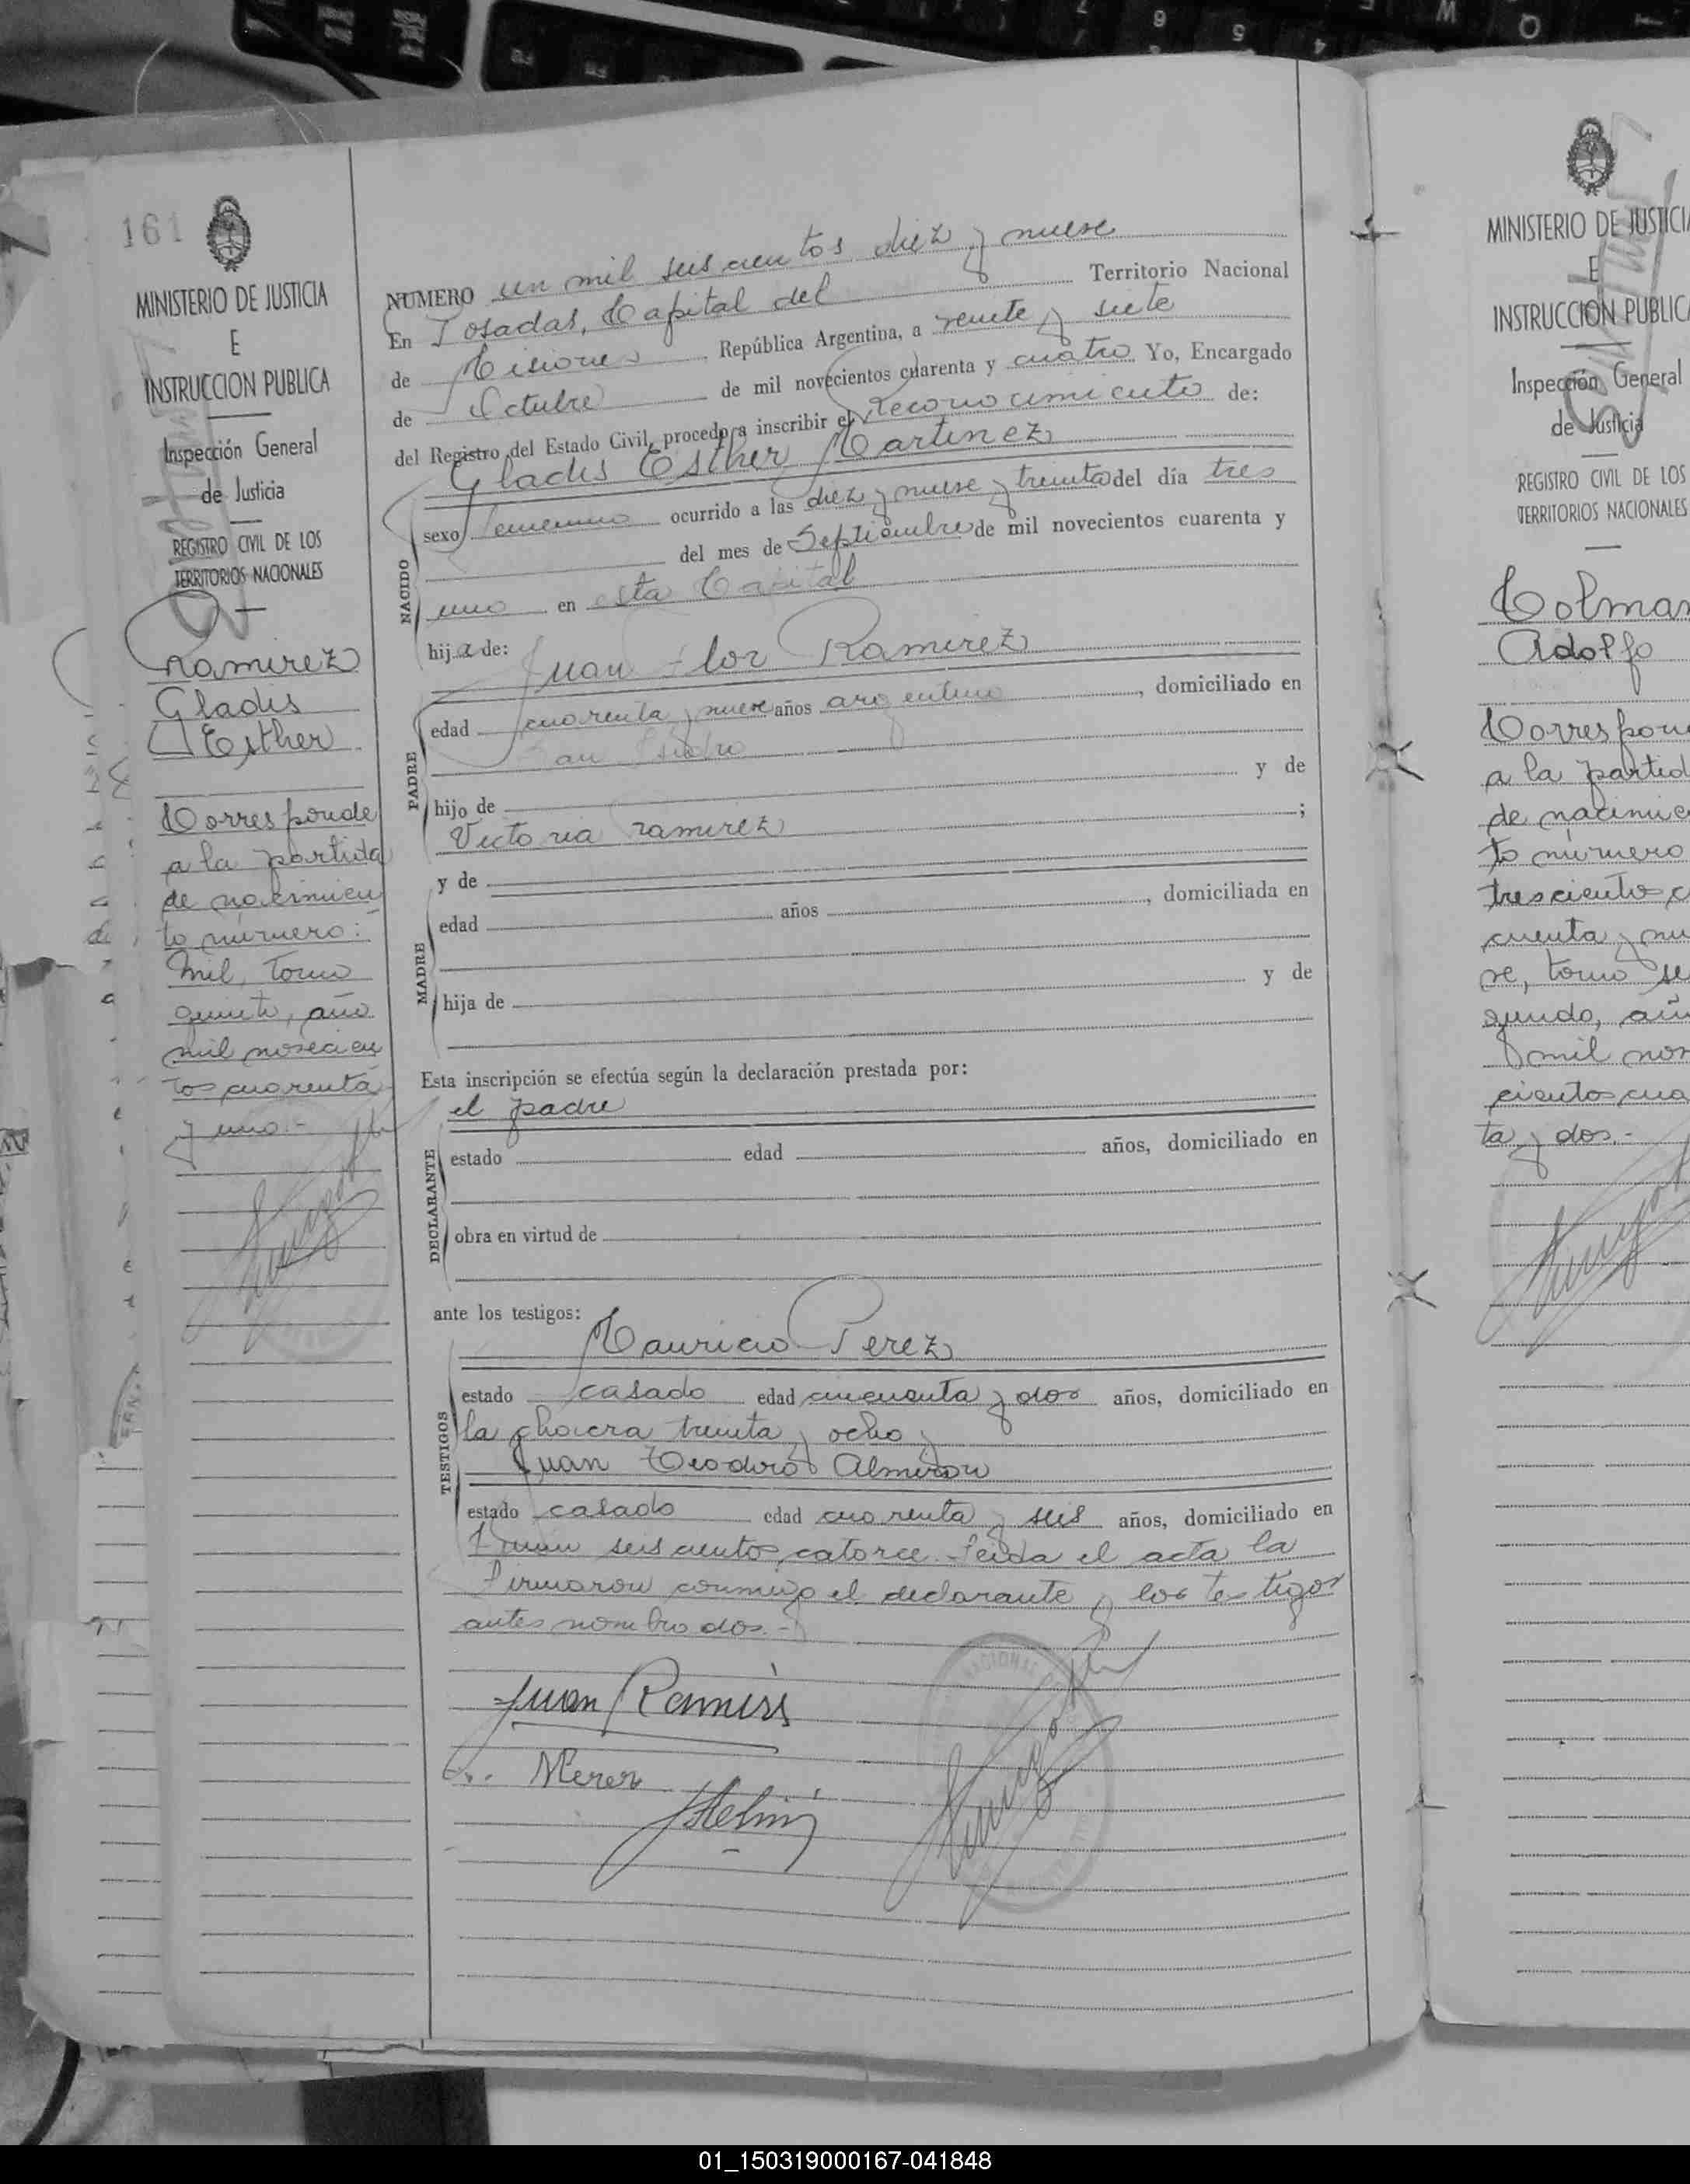 161
MINISTERIO DE JUSTICIA
E
INSTRUCCION PUBLICA
Inspección General
de Justicia
REGISTRO CIVIL DE LOS
TERRITORIOS NACIONALES
Ramirez
Gladis
Esther
Corresponde
a la partida
de nacimien
to número:
mil, tomo
quinto, año
mil novecien
tos cuarenta
y uno.-
NUMERO un mil seiscientos diez y nueve
En Posadas, Capital del Territorio Nacional
de Misiones República Argentina, a veinte y siete
de Octubre de mil novecientos cuarenta y cuatro Yo, Encargado
del Registro del Estado Civil, procedo a inscribir el Reconocimiento de:
Gladis Esther Martinez
NACIDO
sexo femenino ocurrido a las diez y nueve y treinta del día tres
del mes de Septiembre de mil novecientos cuarenta y
uno en esta Capital
hija de: Juan Flor Ramirez
PADRE
edad cuarenta y nueve años argentino, domiciliado en
San Isidro
hijo de y de
Victoria Ramirez ;
y de
MADRE
edad años , domiciliada en
hija de y de
Esta inscripción se efectúa según la declaración prestada por:
el padre
DECLARANTE
estado edad años, domiciliado en
obra en virtud de
ante los testigos:
Mauricio Perez
TESTIGOS
estado casado edad cincuenta y dos años, domiciliado en
la chacra treinta y ocho y
Juan Teodoro Almiron
estado casado edad cuarenta y seis años, domiciliado en
seiscientos catorce. Leida el acta la
firmaron conmigo el declarante y los testigos
antes nombrados.-
NACIONAL
Juan Ramires
MINISTERIO DE JUSTICIA
E
INSTRUCCION PUBLICA
Inspección General
de Justicia
REGISTRO CIVIL DE LOS
TERRITORIOS NACIONALES
Colman
Adolfo
Correspon
a la partid
de nacimie
to número
trescientos c
cuenta y nu
ve, tomo se
gundo, añ
mil nov
cientos cua
ta y dos.-
01_150319000167-041848